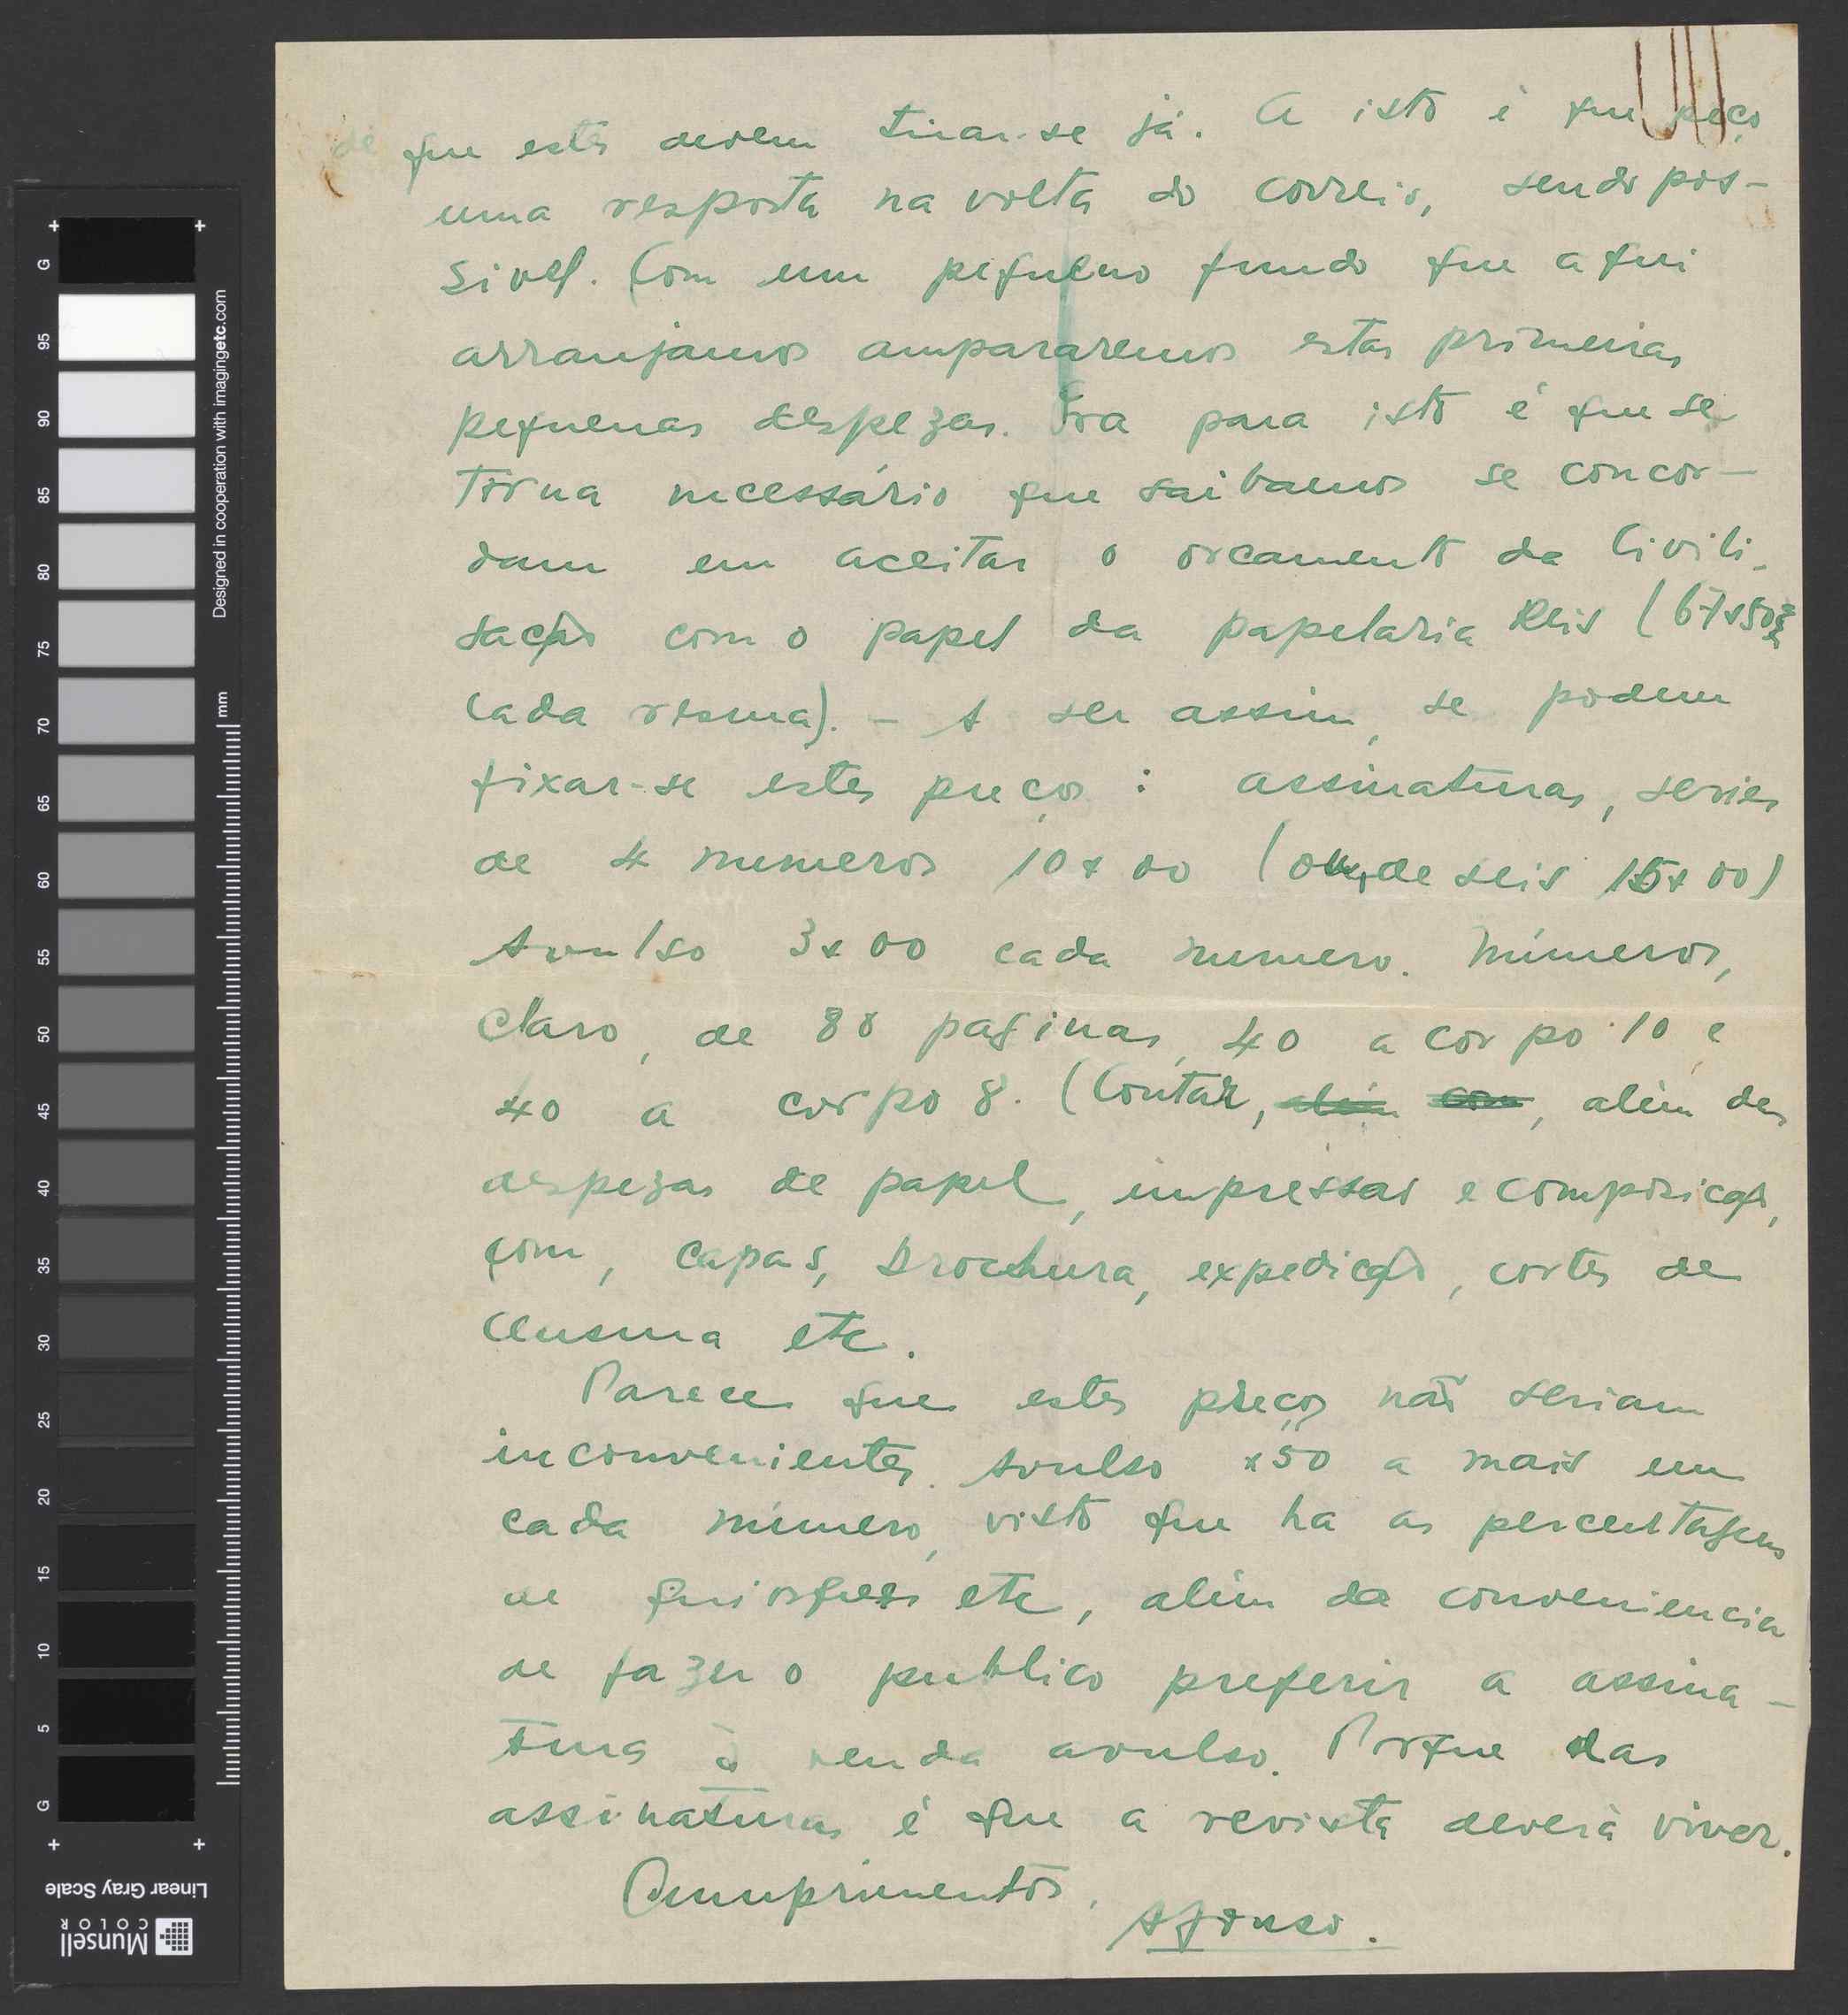 de que estes devem tirar-se já. A isto é que peço
uma resposta na volta do correio, sendo pos-
sivel. Com um pequeno fundo que aqui
arranjamos ampararemos estas primeiras
pequenas despezas. Ora para isto é que se
torna necessário que saibamos se concor-
dam em aceitar o orcamento da Civili-
sação com o papel da papelaria Reis (67$50
cada resma). - A ser assim, se podem
fixar-se estes preços : assinaturas, series
de 4 numeros 10$00 (ou, de seis 15$00)
Avulso 3$00 cada numero. Números,
claro, de 80 paginas, 40 a corpo 10 e
40 a corpo 8. (Contar, além com, além das
despezas de papel, impressas e composição,
com, capas, brochura, expedição, cortes de
censura etc.
Parece que estes preços não seriam
inconvenientes. Avulso $50 a mais em
cada número, visto que ha as percentagens
de quiosques etc, além da conveniencia
de fazer o publico preferir a assina-
tura à venda avulso. Porque das
assinaturas é que a revista deverá viver.
Cumprimentos.
Afonso.
G
95
90
85
80
75
70
65
60
55
50
45
40
35
30
25
20
15
10
5
G
Designed in cooperation with imagingetc.com
mm
Linear Gray Scale
Munsell
COLOR